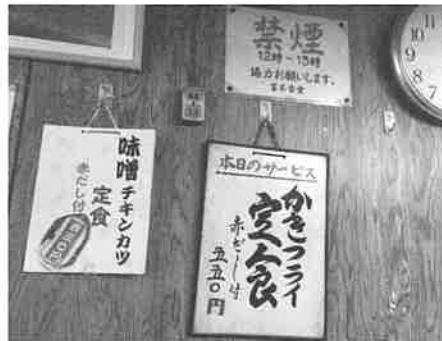 禁煙
12時-13時
協力お願いします。
味噌チキンカツ
定食
赤だし付
本日のサービス
かきフライ
定食
赤だし付
五五〇円
11
10
9
8
7
6